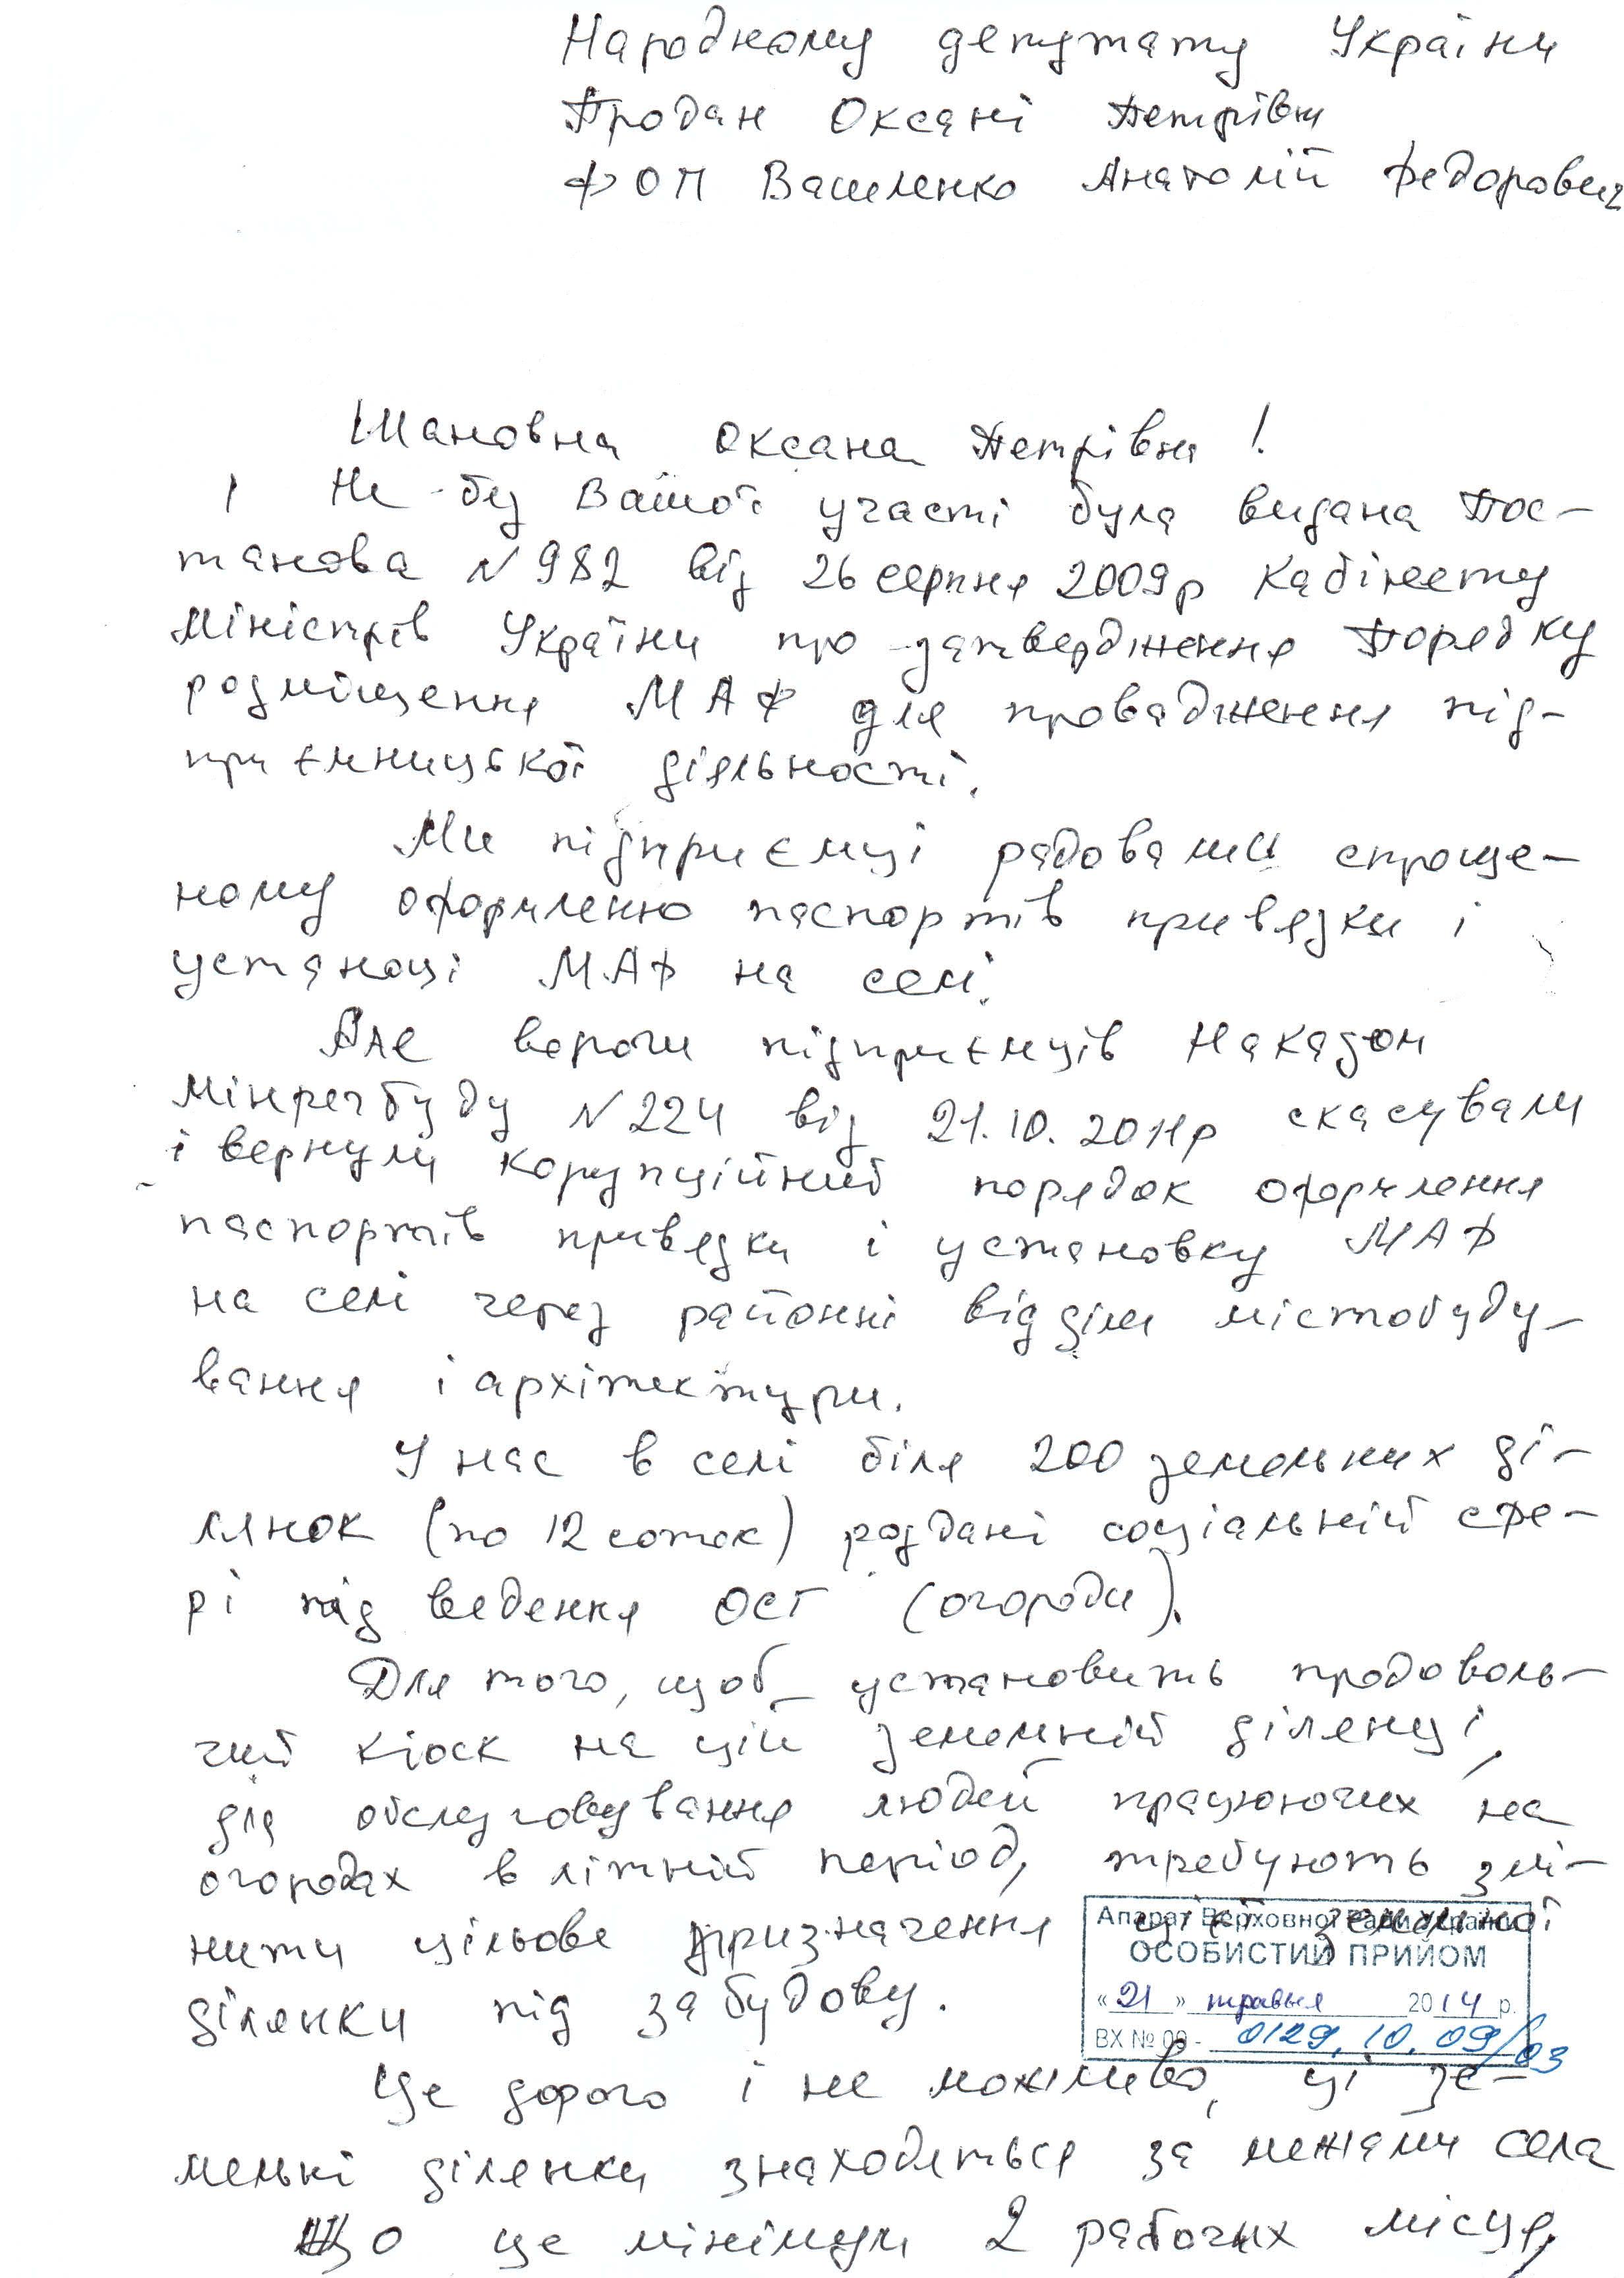 Народному депутату України
Продан Оксані Петрівни
ФОП Василенко Анатолій Федорович
Шановна Оксана Петрівна!
І Не бу Вашої участі була видана Пос-
танова N 982 від 26 серпня 2009р Кабінету
Міністрів України про затвердження Порядку
розміщення МАФ для провадження під-
приємницької діяльності.
Ми підприємці радовалися спроще-
ному оформленню паспортів привязки і
устаноці МАФ на селі.
Але вороги підприємців Наказом
Мінрегбуду N 224 від 21.10.2011р скасували
і вернули корупційний порядок оформлення
паспортів привязки і установку МАФ
на селі через районні відділи містобуду-
вання і архітектури.
У нас в селі біля 200 земельних ді-
лянок (по 12 соток) роздані соціальній сфе-
рі під ведення ОСГ (огороди).
Для того, щоб установить продоволь-
чий кіоск на цій земельній ділянці,
для обслуговування людей працюючих на
огородах в літній період, требують змі-
нити цільове призначення цієї земельної
ділянки під забудову.
Апарат Верховної Ради України
ОСОБИСТИЙ ПРИЙОМ
«21» травня 2014 р.
ВХ № 09 - 0129.10.09/03
Це дорого і не можливо, ці зе-
мельні ділянки знаходяться за межами села
Що це мінімум 2 рабочих місця,